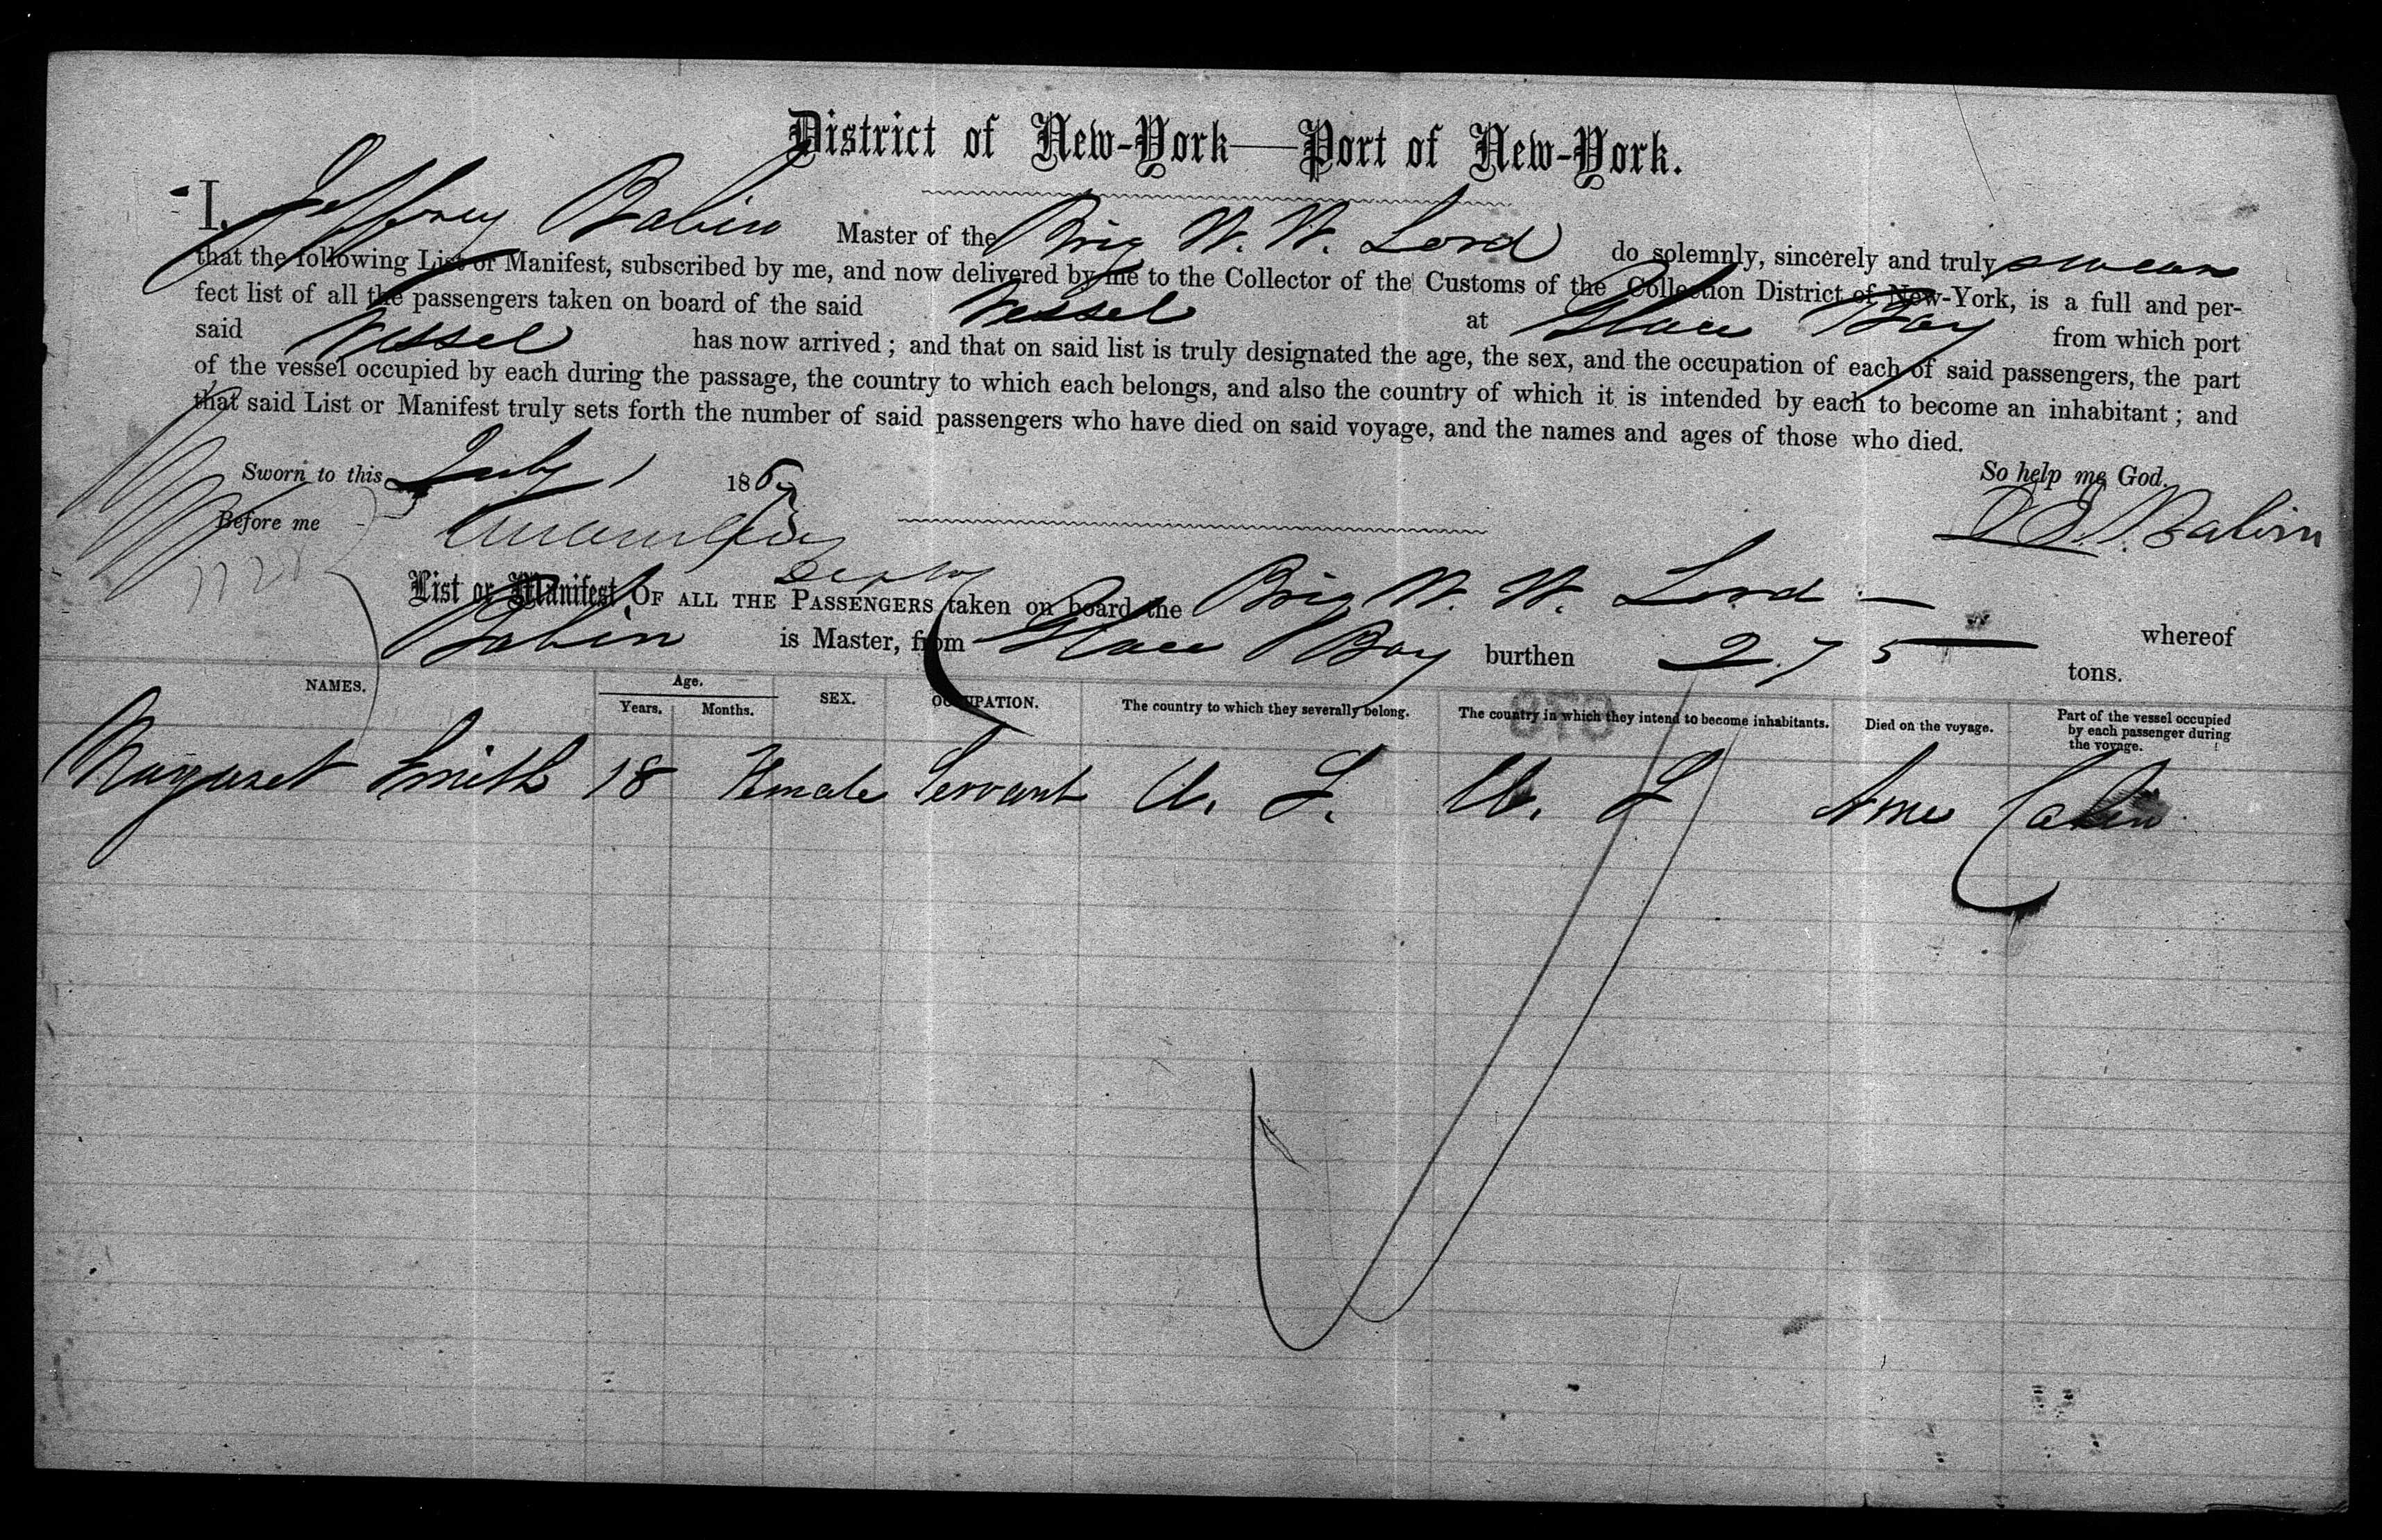 District of New-York—Port of New-York.
I, Jeffrey Babin Master of the Brig W. W. Lord do solemnly, sincerely and truly swear
that the following List or Manifest, subscribed by me, and now delivered by me to the Collector of the Customs of the Collection District of New-York, is a full and per-
fect list of all the passengers taken on board of the said Vessel at Glace Bay from which port
said Vessel has now arrived; and that on said list is truly designated the age, the sex, and the occupation of each of said passengers, the part
of the vessel occupied by each during the passage, the country to which each belongs, and also the country of which it is intended by each to become an inhabitant; and
that said List or Manifest truly sets forth the number of said passengers who have died on said voyage, and the names and ages of those who died.
Sworn to this July 1 186 So help me God.
Before me Babin
List or Manifest OF ALL THE PASSENGERS taken on board the Brig W. W. Lord — whereof
Babin is Master, from Glace Bay burthen 275 tons.
NAMES. Age. Years. Months. SEX. OCCUPATION. The country to which they severally belong. The country in which they intend to become inhabitants. Died on the voyage. Part of the vessel occupied by each passenger during the voyage.
Margaret Smith 18 Female Servant U. S. U. S Cabin